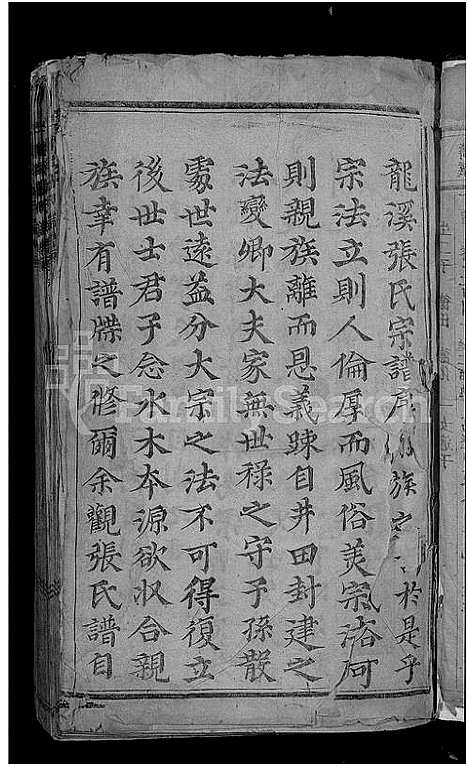 龍溪張氏宗譜序族之於是乎
宗法立則人倫厚而風俗美宗法何
則親族離而恩義踈自井田封建之
法變卿大夫家無世祿之守子孫散
處世遠益分大宗之法不可得復立
後世士君子念水木本源欲收合親
族幸有譜牒之修爾余觀張氏譜自
FamilySearch